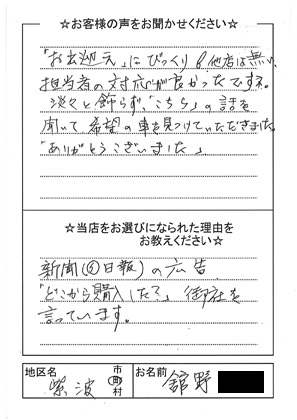 ☆お客様の声をお聞かせください☆
「お出迎え」にびっくり 他店は無い、
担当者の対応が良かったですネ。
淡々と飾らず、「こちら」の話を
聞いて希望の車を見つけていただきました。
「ありがとうございました」
☆当店をお選びになられた理由を
お教えください☆
新聞(日報)の広告
「どこから購入したて」御社を
言っています。
地区名 紫波 市町村 お名前 舘野